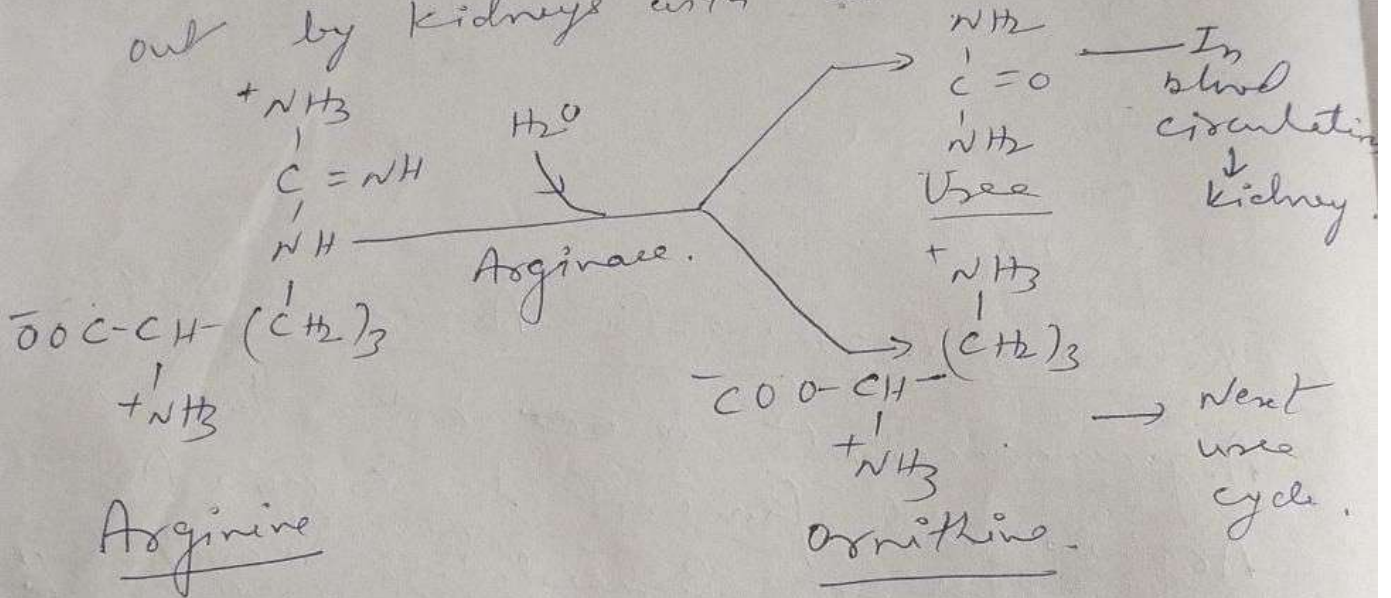 out by kidneys with
+NH3
C = NH
NH
-OOC-CH-(CH2)3
+NH3
Arginine
H2O
Arginase.
NH2
C = O
NH2
Urea
In
blood
circulation
↓
kidney.
+NH3
(CH2)3
-COO-CH-
+NH3
Ornithine.
→ Next
urea
cycle.